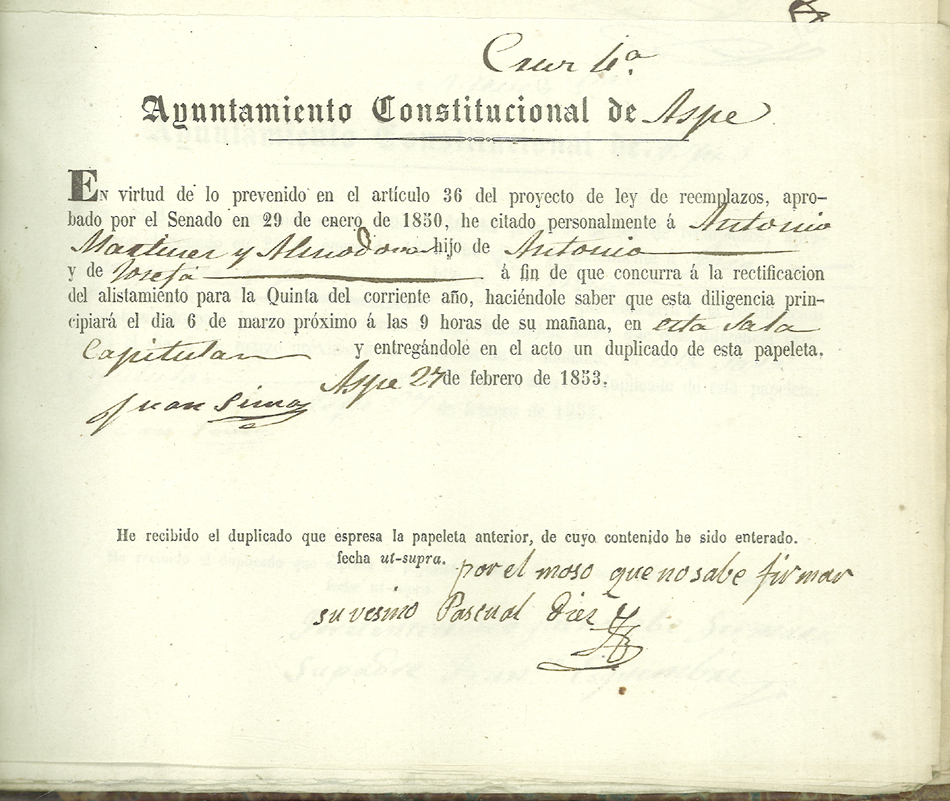 Cruz 4ª
Ayuntamiento Constitucional de Aspe
EN virtud de lo prevenido en el artículo 36 del proyecto de ley de reemplazos, apro-
bado por el Senado en 29 de enero de 1850, he citado personalmente á Antonio
Martinez y Almodovar hijo de Antonio
y de Josefa á fin de que concurra á la rectificacion
del alistamiento para la Quinta del corriente año, haciéndole saber que esta diligencia prin-
cipiará el dia 6 de marzo próximo á las 9 horas de su mañana, en esta Sala
Capitular y entregándole en el acto un duplicado de esta papeleta.
Aspe 27 de febrero de 1853.
Juan
He recibido el duplicado que espresa la papeleta anterior, de cuyo contenido he sido enterado.
fecha ut-supra.
por el moso que no sabe firmar
su vesino Pascual Diez